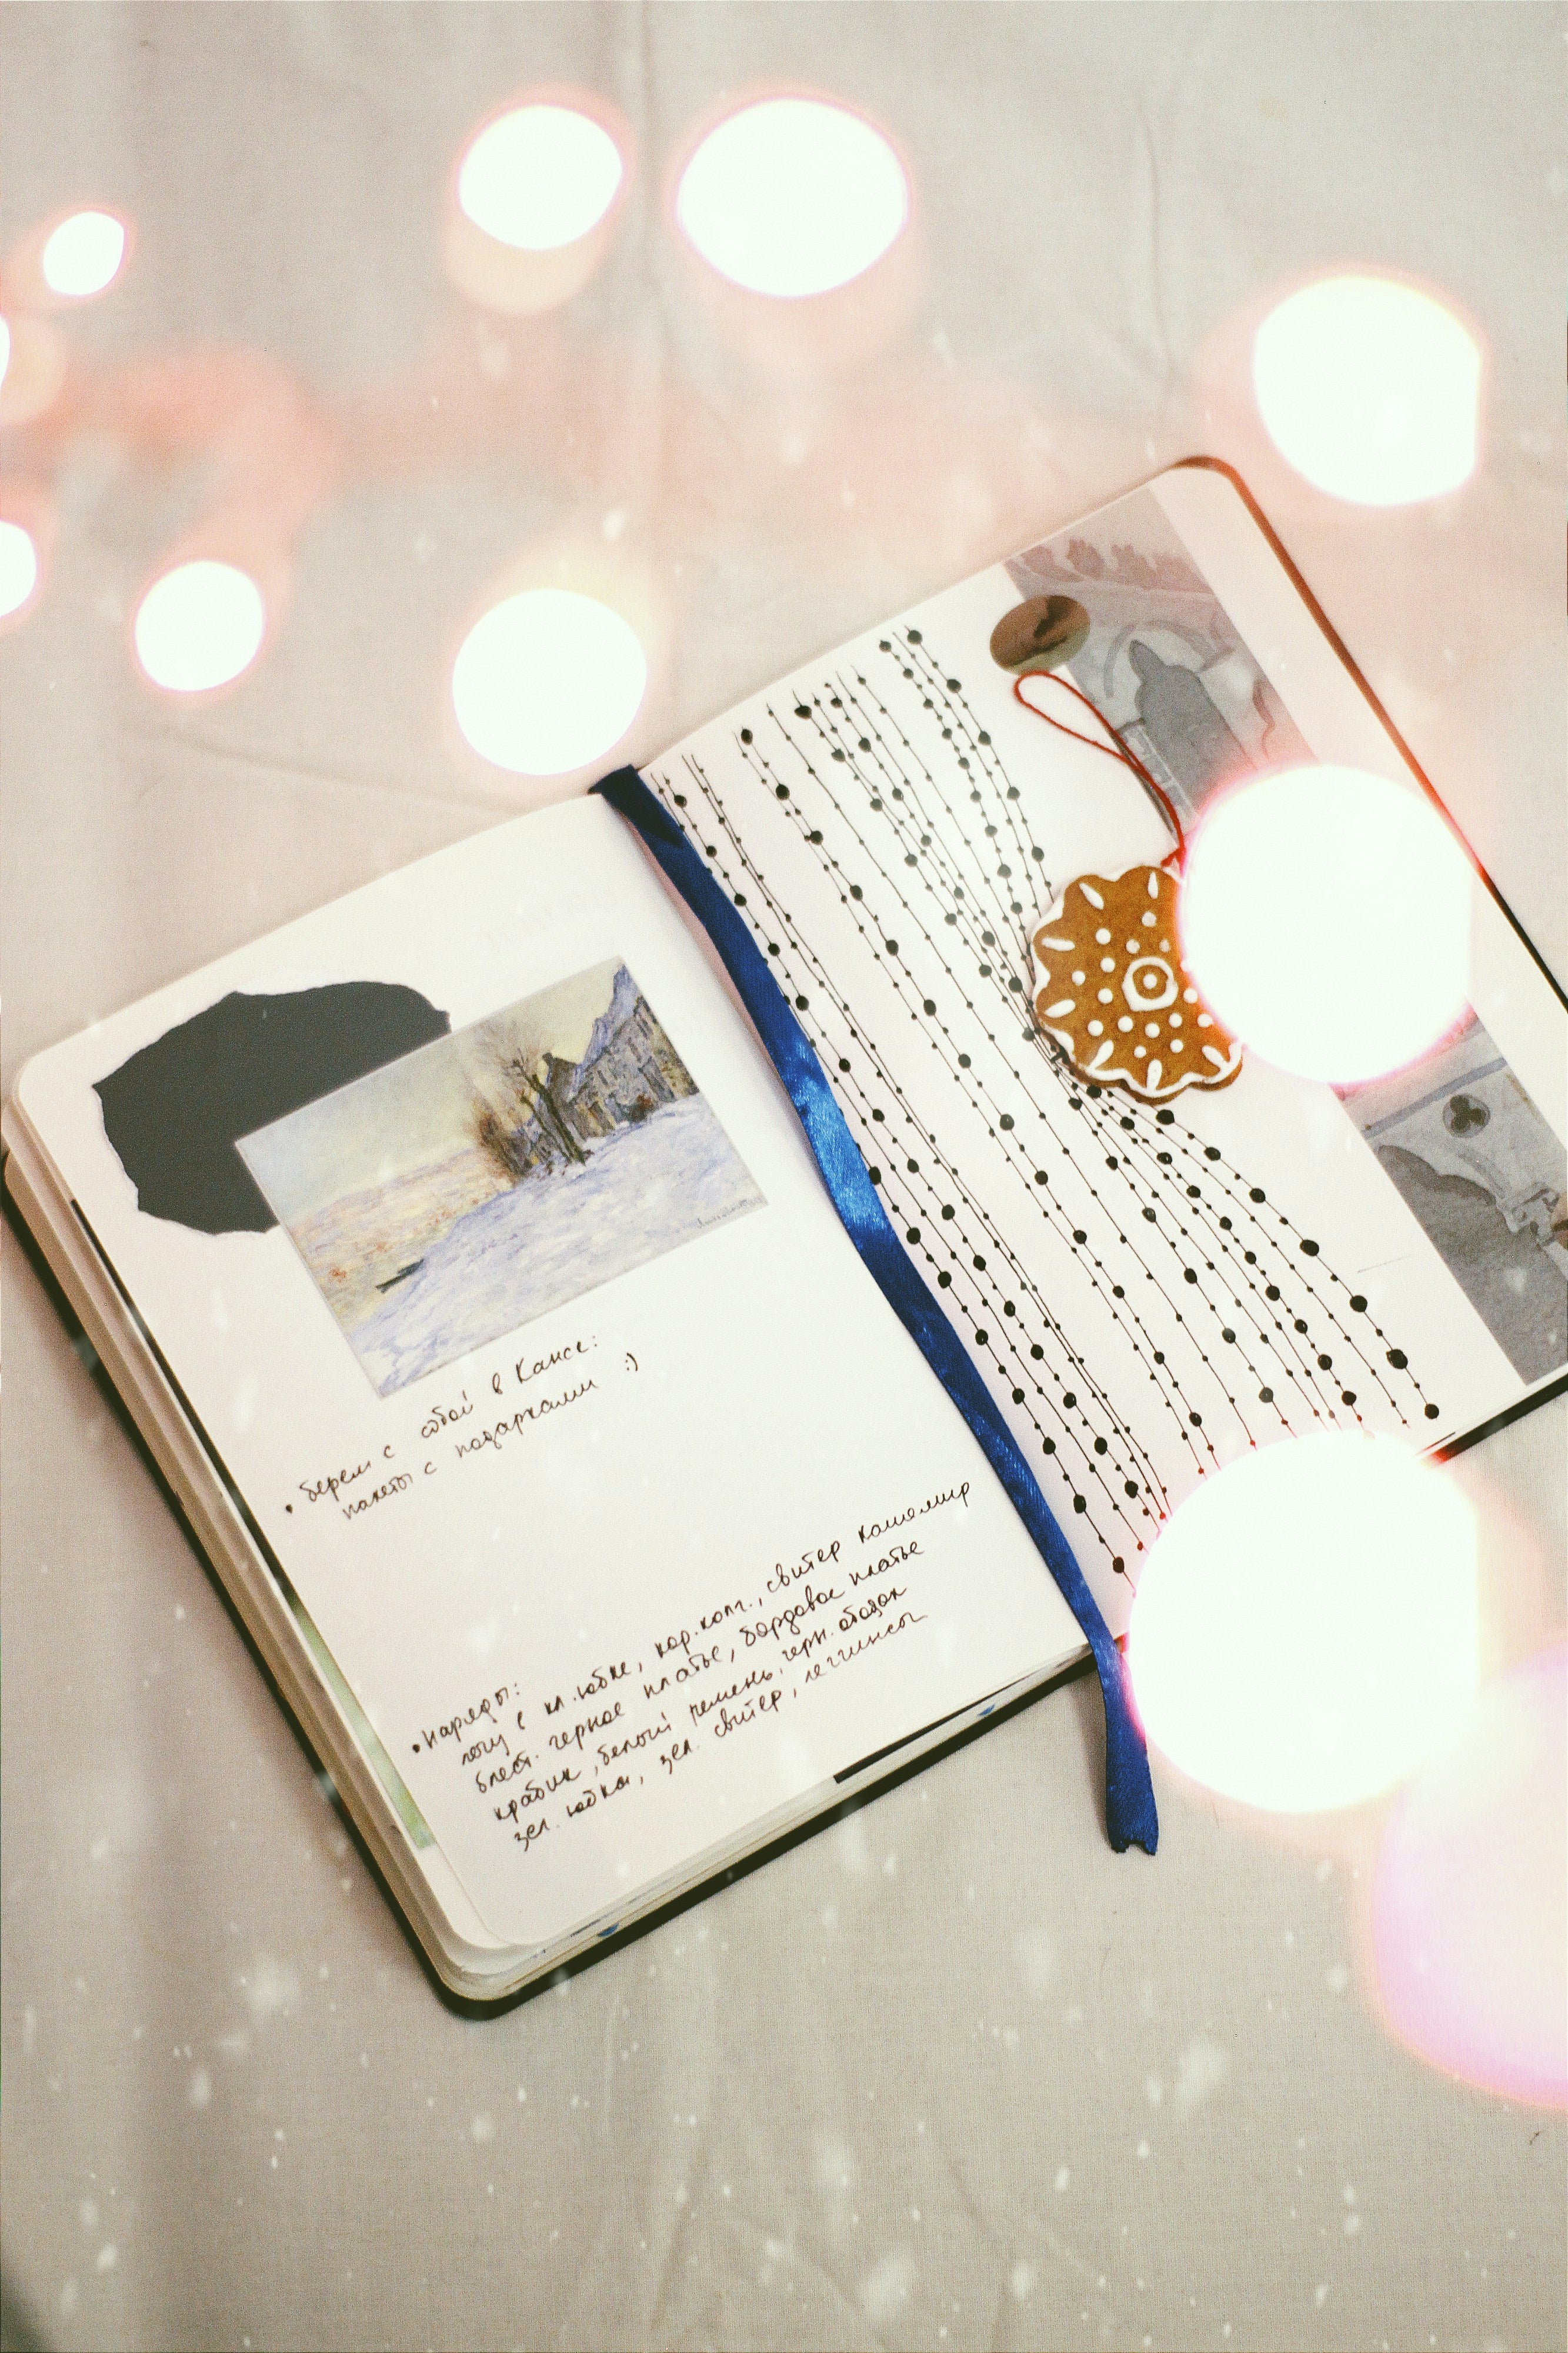 • берем с собой в Кансе:
пакеты с подарками :)
• Наряды:
лочу в кл. юбке, кор. колг., свитер кашемир
блест. черное платье, бордовое платье
крабик, белый ремень, черн. ободок
зел. юбка, зел. свитер, леггинсы